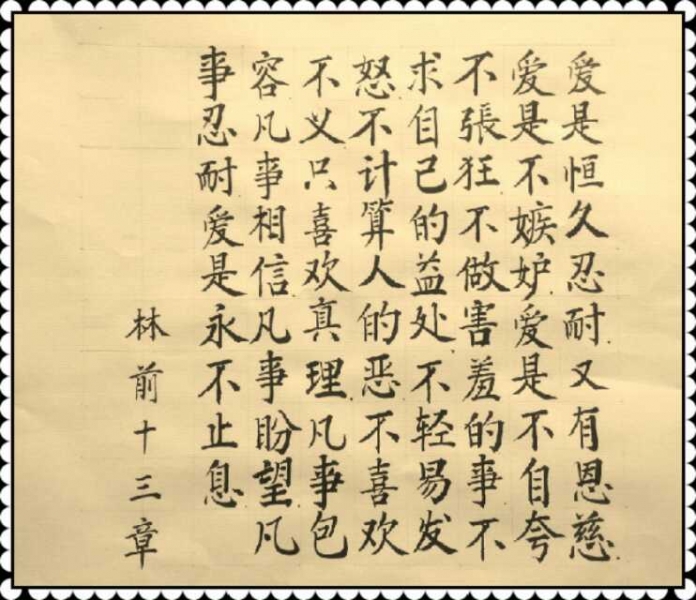 爱是恒久忍耐又有恩慈
爱是不嫉妒爱是不自夸
不張狂不做害羞的事不
求自己的益处不轻易发
怒不计算人的恶不喜欢
不义只喜欢真理凡事包
容凡事相信凡事盼望凡
事忍耐爱是永不止息
林前十三章